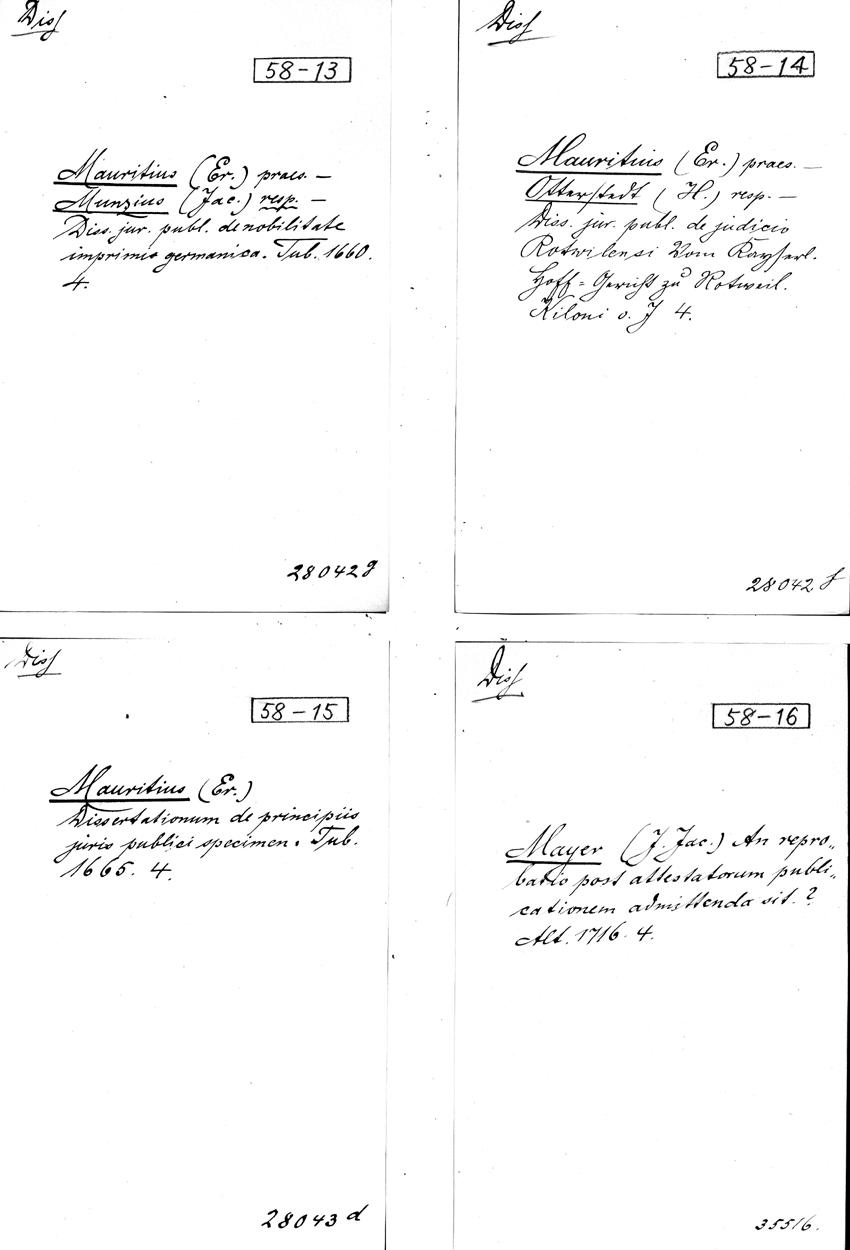 Diss
58-13
Mauritius (Er.) praes. —
Munzius (Jac.) resp. —
Diss. jur. publ. de nobilitate
imprimis germanica. Tub. 1660.
4.
28042 g
Diss
58-14
Mauritius (Er.) praes. —
Otterstedt (H.) resp. —
Diss. jur. publ. de judicio
Rotwilensi Vom Kayserl.
Hoff-Gericht zu Rotweil.
Kiloni o. J 4.
28042 f
Diss
58-15
Mauritius (Er.)
Dissertationum de principiis
juris publici specimen. Tub.
1665. 4.
28043 d
Diss
58-16
Mayer (J. Jac.) An repro„
batio post attestatorum publi„
cationem admittenda sit.?
Alt. 1716. 4.
35516.